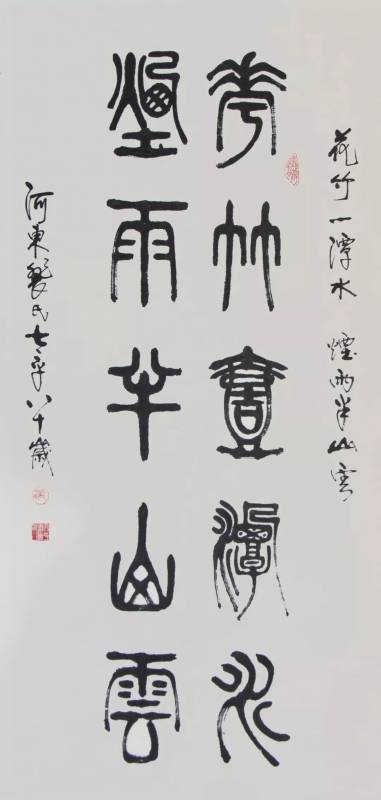 花竹一潭水 煙雨半山雲
華竹壹潭水
煙雨半山雲
河東氏八十歲